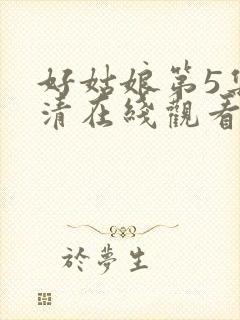 好姑娘第5
清在綫觀看
於夢生